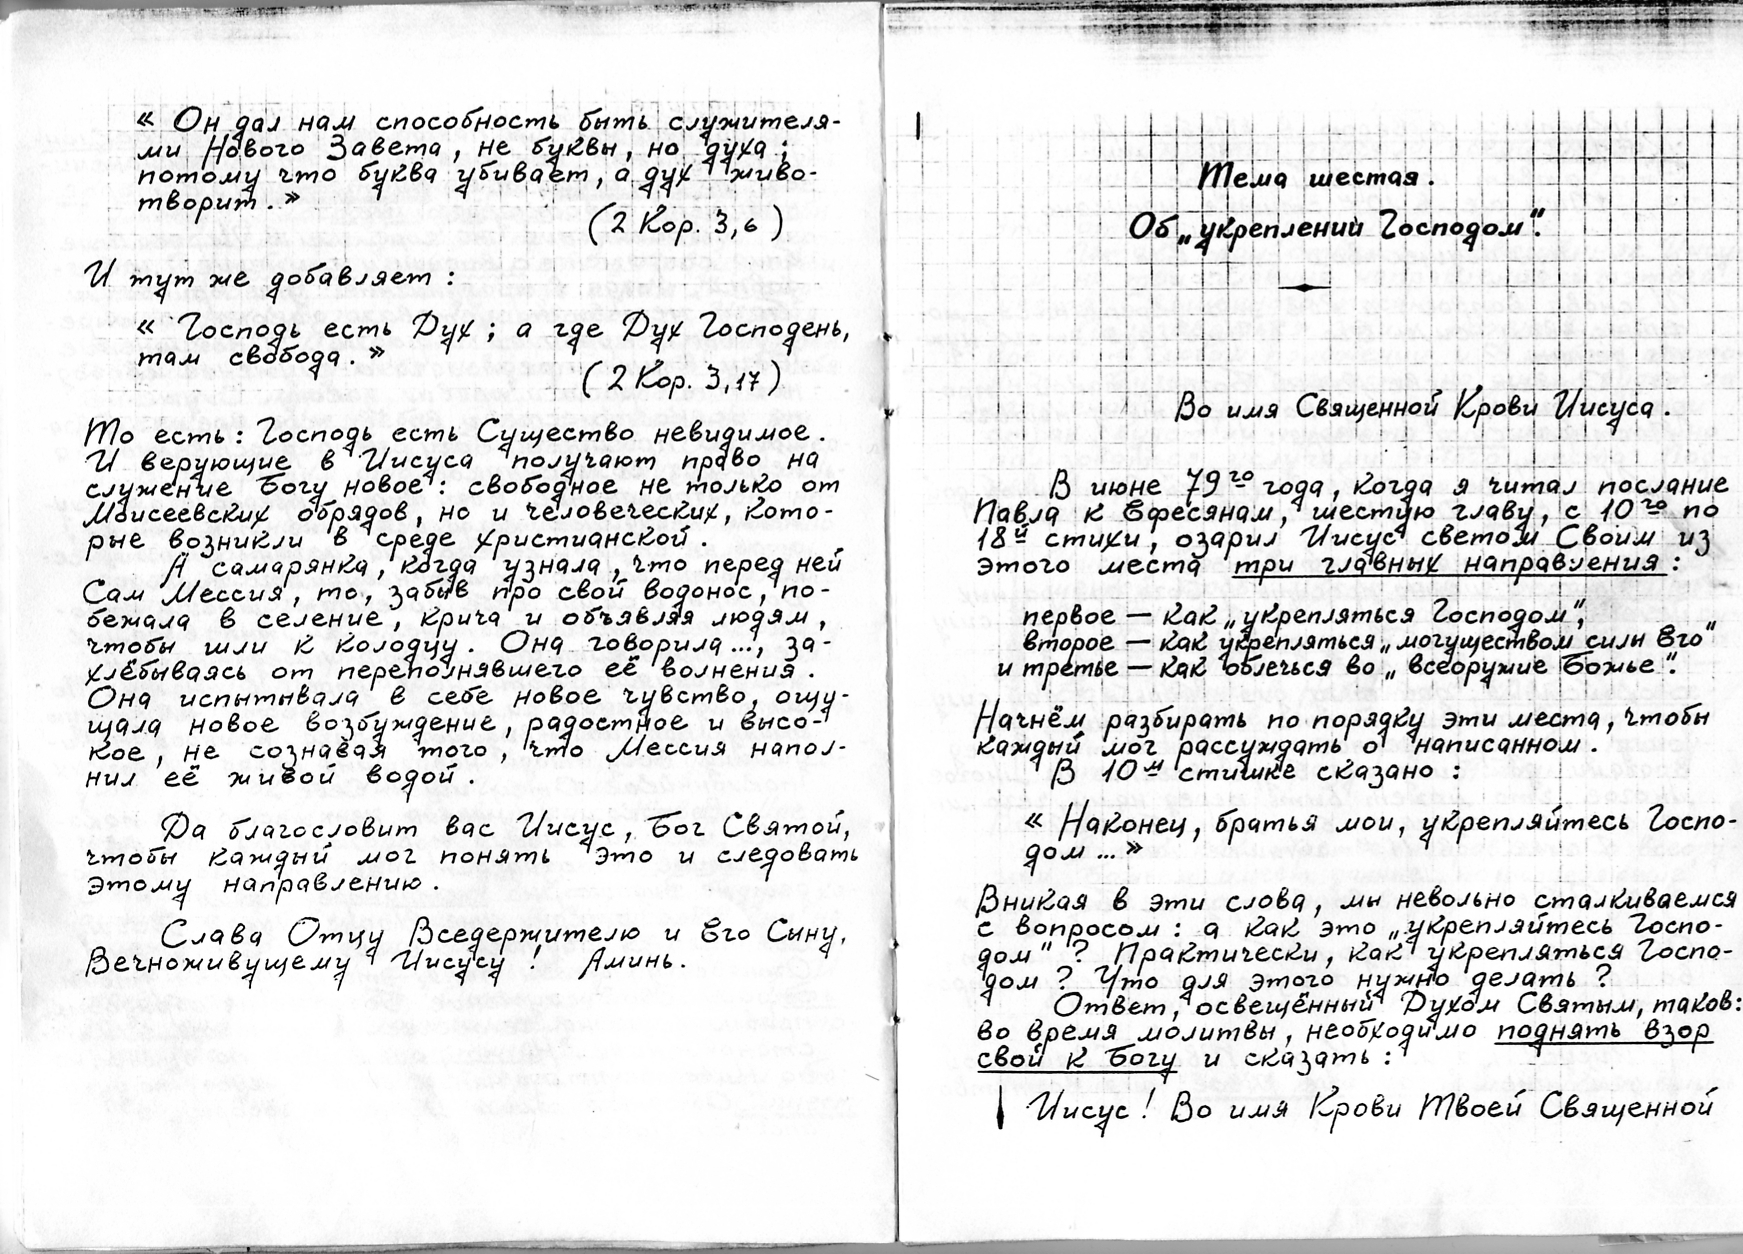 « Он дал нам способность быть служителя-
ми Нового Завета, не буквы, но духа;
потому что буква убивает, а дух живо-
творит. »
(2 Кор. 3,6)
И тут же добавляет:
« Господь есть Дух; а где Дух Господень,
там свобода. »
(2 Кор. 3,17)
То есть: Господь есть Существо невидимое.
И верующие в Иисуса получают право на
служение Богу новое: свободное не только от
Моисеевских обрядов, но и человеческих, кото-
рые возникли в среде христианской.
А самарянка, когда узнала, что перед ней
Сам Мессия, то, забыв про свой водонос, по-
бежала в селение, крича и объявляя людям,
чтобы шли к колодцу. Она говорила..., за-
хлёбываясь от переполнявшего её волнения.
Она испытывала в себе новое чувство, ощу-
щала новое возбуждение, радостное и высо-
кое, не сознавая того, что Мессия напол-
нил её живой водой.
Да благословит вас Иисус, Бог Святой,
чтобы каждый мог понять это и следовать
этому направлению.
Слава Отцу Вседержителю и Его Сыну,
Вечноживущему Иисусу! Аминь.
Тема шестая.
Об „укреплении Господом".
Во имя Священной Крови Иисуса.
В июне 79го года, когда я читал послание
Павла к Ефесянам, шестую главу, с 10го по
18й стихи, озарил Иисус светом Своим из
этого места три главных направления:
первое — как „укрепляться Господом",
второе — как укрепляться „могуществом силы Его"
и третье — как облечься во „всеоружие Божье".
Начнём разбирать по порядку эти места, чтобы
каждый мог рассуждать о написанном.
В 10м стишке сказано:
« Наконец, братья мои, укрепляйтесь Госпо-
дом... »
Вникая в эти слова, мы невольно сталкиваемся
с вопросом: а как это „укрепляйтесь Госпо-
дом"? Практически, как укрепляться Госпо-
дом? Что для этого нужно делать?
Ответ, освещённый Духом Святым, таков:
во время молитвы, необходимо поднять взор
свой к Богу и сказать:
Иисус! Во имя Крови Твоей Священной